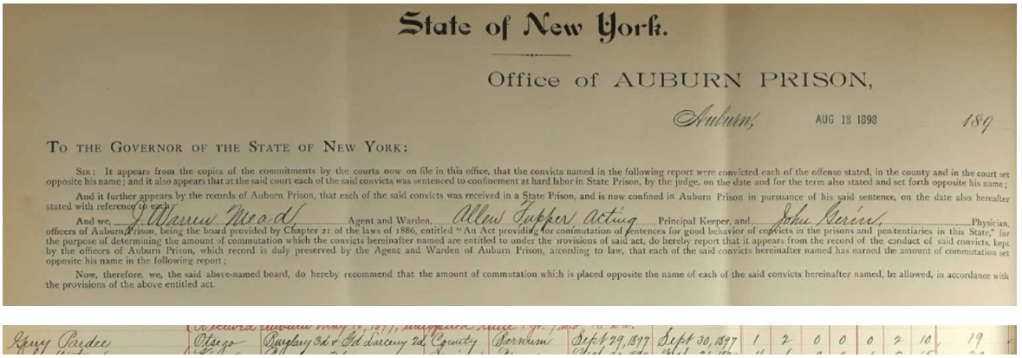 State of New York.
Office of AUBURN PRISON,
Auburn, AUG 18 1898 189
TO THE GOVERNOR OF THE STATE OF NEW YORK:
SIR: It appears from the copies of the commitments by the courts now on file in this office, that the convicts named in the following report were convicted each of the offense stated, in the county and in the court set
opposite his name; and it also appears that at the said court each of the said convicts was sentenced to confinement at hard labor in State Prison, by the judge, on the date and for the term also stated and set forth opposite his name;
And it further appears by the records of Auburn Prison, that each of the said convicts was received in a State Prison, and is now confined in Auburn Prison in pursuance of his said sentence, on the date also hereafter
stated with reference to each;
And we, J. Warren Mead Agent and Warden, Allen Tupper Acting Principal Keeper, and John Gerin, Physician,
officers of Auburn Prison, being the board provided by Chapter 21 of the laws of 1886, entitled "An Act providing for commutation of sentences for good behavior of convicts in the prisons and penitentiaries in this State," for
the purpose of determining the amount of commutation which the convicts hereinafter named are entitled to under the provisions of said act, do hereby report that it appears from the record of the conduct of said convicts, kept
by the officers of Auburn Prison, which record is duly preserved by the Agent and Warden of Auburn Prison, according to law, that each of the said convicts hereinafter named has earned the amount of commutation set
opposite his name in the following report;
Now, therefore, we, the said above-named board, do hereby recommend that the amount of commutation which is placed opposite the name of each of the said convicts hereinafter named, be allowed, in accordance with
the provisions of the above entitled act.
Pardee Otsego Burglary 3d & Gd Larceny 2d County Barnum Sept 29, 1897 Sept 30, 1897 1 2 0 0 0 2 10 19